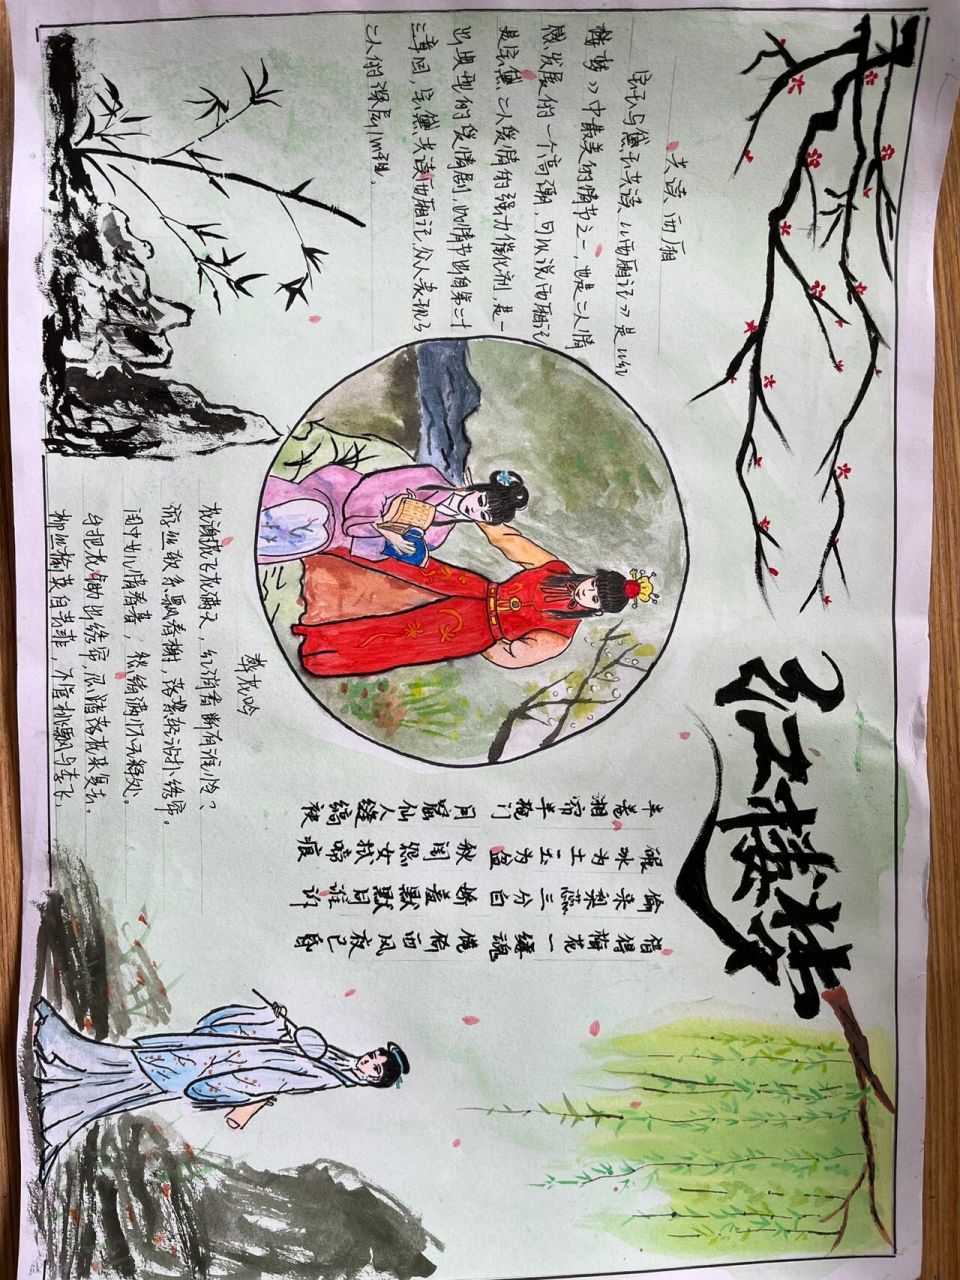 红楼梦
共读西厢
宝玉与黛玉共读《西厢记》是《红
楼梦》中最美的情节之一,也是二人情
感发展的一个高潮,可以说西厢记
是宝黛二人爱情的强力催化剂,是一
出典型的爱情剧,此情节出自第二十
三章回,宝黛共读西厢记,众人表现了
二人的深层心理、
半卷湘帘半掩门 月窟仙人缝缟袂
碾冰为土玉为盆 秋闺怨女拭啼痕
偷来梨蕊三分白 娇羞默默同谁诉
借得梅花一缕魂 倦倚西风夜已昏
葬花吟
花谢花飞花满天,红消香断有谁怜?
游丝软系飘春榭,落絮轻沾扑绣帘。
闺中女儿惜春暮,愁绪满怀无释处。
手把花锄出绣帘,忍踏落花来复去。
柳丝榆荚自芳菲,不管桃飘与李飞,